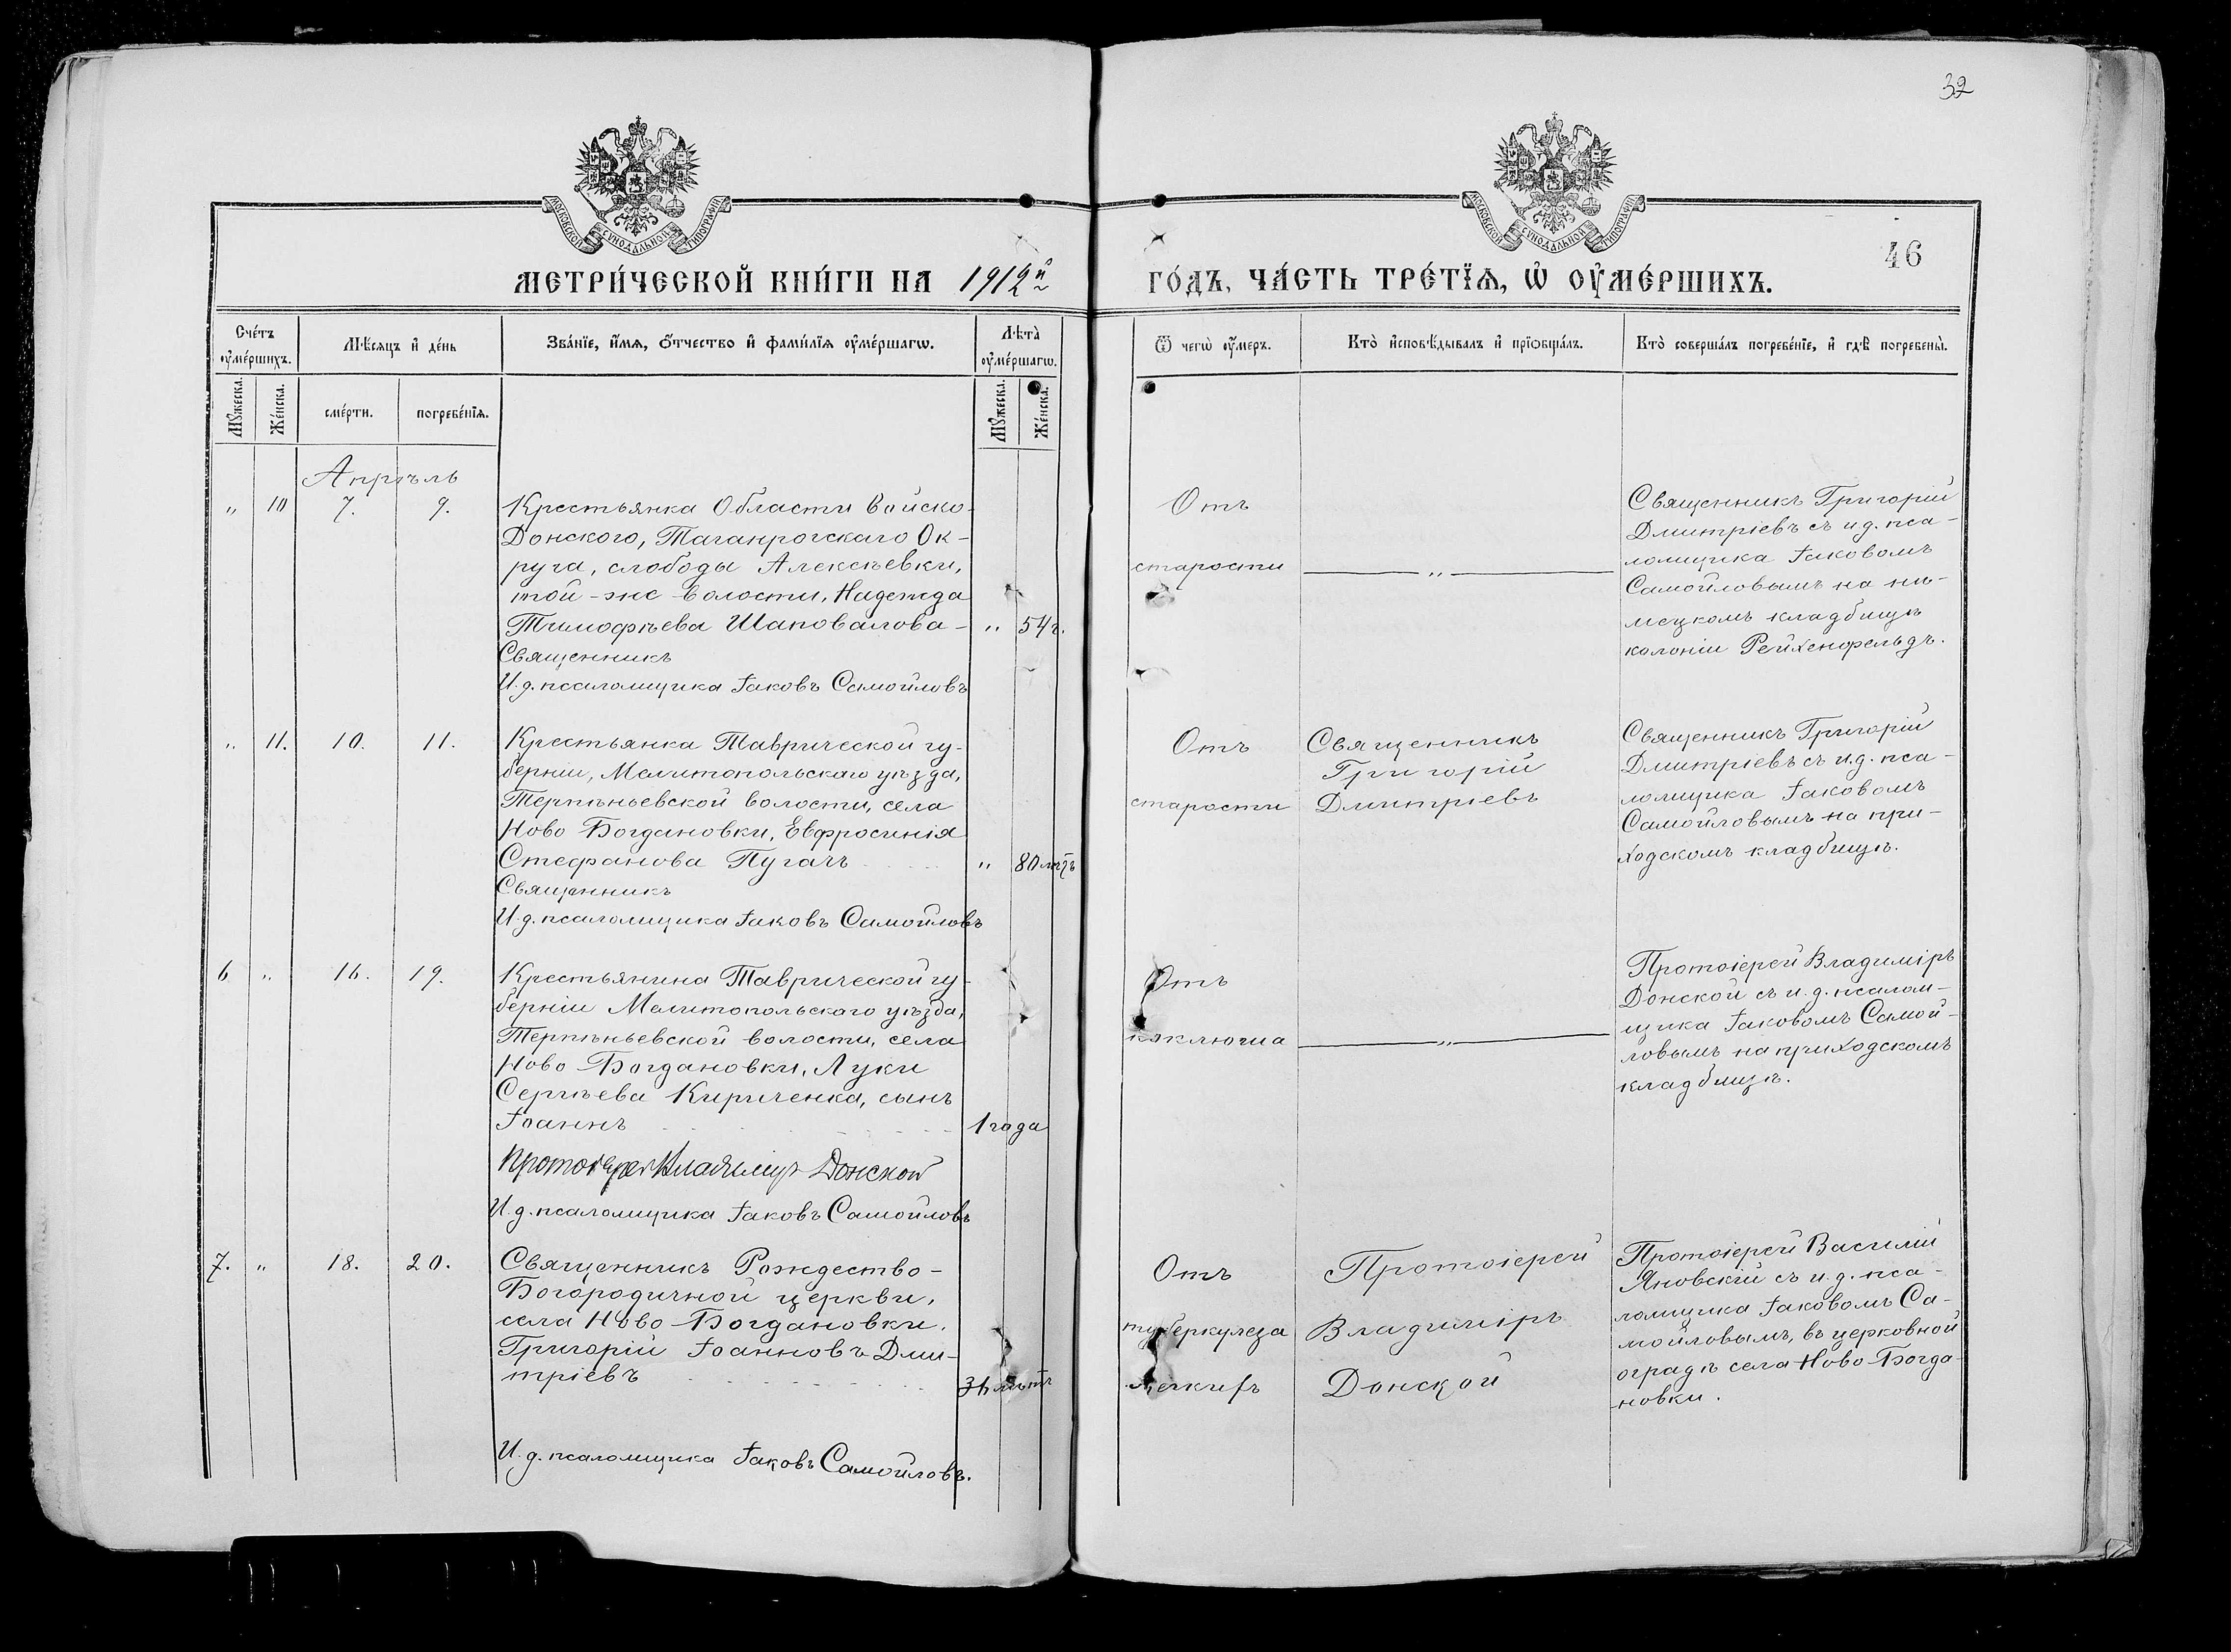 32
46
МОСКОВСКОЙ СѴНОДАЛЬНОЙ ТИПОГРАФІИ
МОСКОВСКОЙ СѴНОДАЛЬНОЙ ТИПОГРАФІИ
МЕТРИ́ЧЕСКОЙ КНИ́ГИ НА 1912й
ГО́ДЪ, ЧА́СТЬ ТРЕ́ТЇѦ, Ѡ҆ ОУ҆МЕ́РШИХЪ.
Сче́тъ оу҆ме́ршихъ.
Мꙋжеска.
Же́нска.
Мѣ́сяцъ и҆ де́нь
сме́рти.
погребе́нїѧ.
Зва́нїе, и҆́мѧ, ѻ҆́тчество и҆ фами́лїѧ оу҆ме́ршагѡ.
Лѣта̀ оу҆ме́ршагѡ.
Мꙋжеска.
Же́нска.
Ѿ чегѡ̀ оу҆́меръ.
Кто̀ и҆сповѣ́дывалъ и҆ прїѡбща́лъ.
Кто̀ соверша́лъ погребе́нїе, и҆ гдѣ̀ погребены̀.
Апрѣль
„ 10 7. 9.
Крестьянка Области Войско
Донского, Таганрогскаго Ок-
руга, слободы Алексѣевки,
той-же волости, Надежда
Тимофѣева Шаповалова - „ 54 г.
Священникъ
И.д. псаломщика Іаковъ Самойловъ
Отъ
старости
„
Священникъ Григорій
Дмитріевъ съ и.д. пса-
ломщика Іаковомъ
Самойловымъ на нѣ-
мецкомъ кладбищѣ
колоніи Рейхенфельдъ.
„ 11. 10. 11.
Крестьянка Таврической гу-
берніи, Мелитопольскаго уѣзда,
Терпѣньевской волости, села
Ново Богдановки, Евфросинія
Стефанова Пугачъ „ 80 лѣтъ
Священникъ
И.д. псаломщика Іаковъ Самойловъ
Отъ
старости
Священникъ
Григорій
Дмитріевъ
Священникъ Григорій
Дмитріевъ съ и.д. пса-
ломщика Іаковомъ
Самойловымъ на при-
ходскомъ кладбищѣ.
6 „ 16. 19.
Крестьянина Таврической гу-
берніи Мелитопольскаго уѣзда,
Терпѣньевской волости, села
Ново Богдановки, Луки
Сергѣева Кириченка, сынъ
Іоаннъ 1 года
Протоіерей Владиміръ Донской
И.д. псаломщика Іаковъ Самойловъ
Отъ
коклюша
„
Протоіерей Владиміръ
Донской съ и.д. псалом-
щика Іаковомъ Самой-
ловымъ на приходскомъ
кладбищѣ.
7. „ 18. 20.
Священникъ Рождество-
Богородичной церкви,
села Ново Богдановки,
Григорій Іоанновъ Дми-
тріевъ 36 лѣтъ
И.д. псаломщика Іаковъ Самойловъ.
Отъ
туберкулеза
легкихъ
Протоіерей
Владиміръ
Донской
Протоіерей Василій
Яновскій съ и.д. пса-
ломщика Іаковомъ Са-
мойловымъ, въ церковной
оградѣ села Ново Богда-
новки.